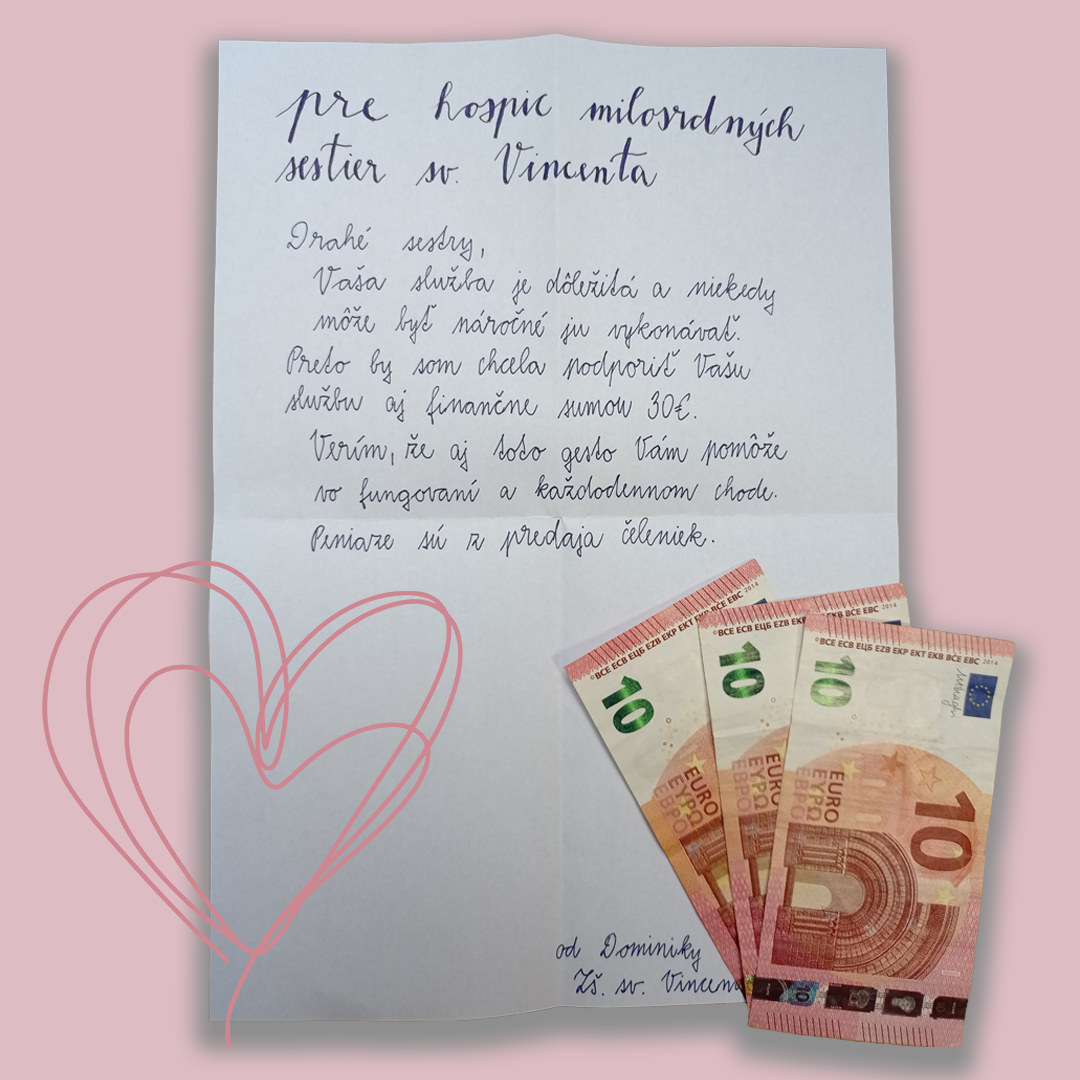 pre hospic milosrdných
sestier sv. Vincenta
Drahé sestry,
Vaša služba je dôležitá a niekedy
môže byť náročné ju vykonávať.
Preto by som chcela podporiť Vašu
službu aj finančne sumou 30€.
Verím, že aj toto gesto Vám pomôže
vo fungovaní a každodennom chode.
Peniaze sú z predaja čeleniek.
od Dominiky
ZŠ. sv.
©BCE ECB ЕЦБ EZB EKP EKT 2014
10
EURO
ΕΥΡΩ
ЕВРО
©BCE ECB ЕЦБ EZB EKP EKT EKB BČE EBC 2014
10
EURO
ΕΥΡΩ
ЕВРО
©BCE ECB ЕЦБ EZB EKP EKT EKB BČE EBC 2014
10
EURO
ΕΥΡΩ
ЕВРО
10
10